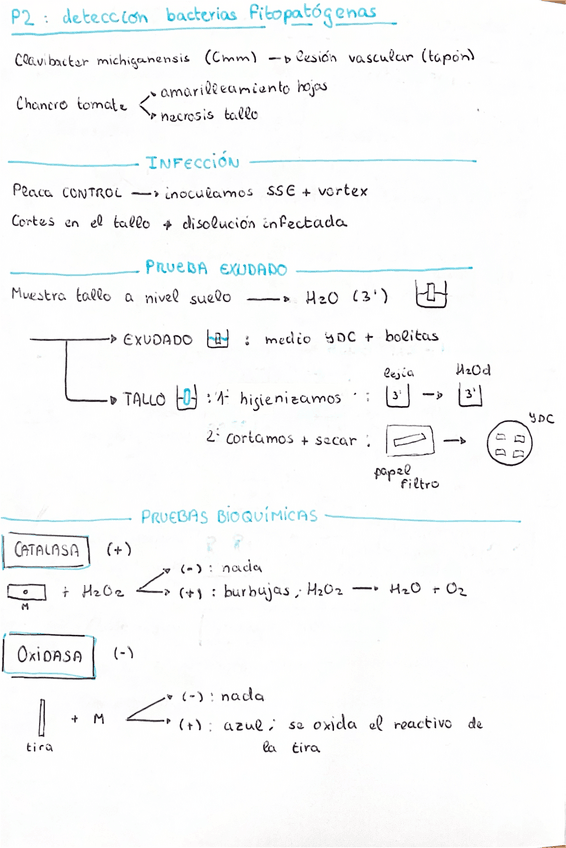 P2: detección bacterias Fitopatógenas
Clavibacter michiganensis (Cmm) → Lesión vascular (tapón)
Chancro tomate
amarilleamiento hojas
necrosis tallo
INFECCIÓN
Placa CONTROL → inoculamos SSE + vortex
Cortes en el tallo + disolución infectada
PRUEBA EXUDADO
Muestra tallo a nivel suelo → H2O (3')
→ EXUDADO : medio YDC + bolitas
→ TALLO : 1º higienizamos : lejia 3' → H2Od 3'
2º cortamos + secar : papel Filtro → YDC
PRUEBAS BIOQUÍMICAS
CATALASA (+)
M + H2O2
(-) : nada
(+) : burbujas, H2O2 → H2O + O2
OXIDASA (-)
tira + M
(-) : nada
(+) : azul; se oxida el reactivo de
la tira